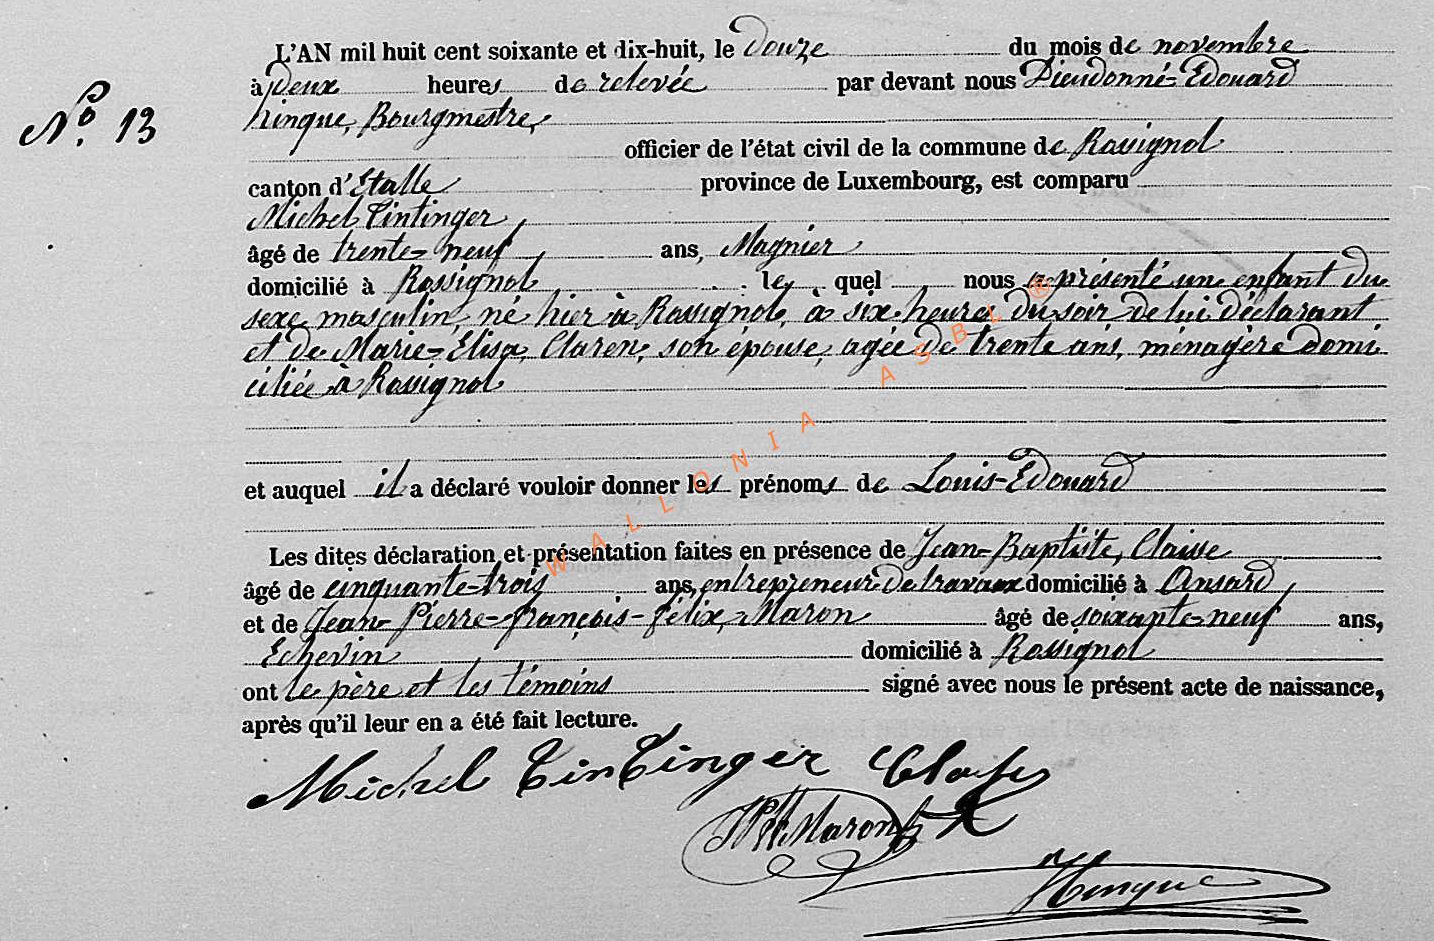 L'AN mil huit cent soixante et dix-huit, le douze du mois de novembre
No. 13
à deux heures de relevée par devant nous Dieudonné-Edouard
hinque, Bourgmestre,
officier de l'état civil de la commune de Rossignol
canton d'Etalle province de Luxembourg, est comparu
Michel Tintinger
âgé de trente-neuf ans, Magnier
domicilié à Rossignol lequel nous a présenté un enfant du
sexe masculin, né hier à Rossignol, à six heures du soir de lui déclarant
et de Marie-Elisa, Claren, son épouse, agée de trente ans, ménagère domi
ciliée à Rossignol
et auquel il a déclaré vouloir donner les prénoms de Louis-Edouard
Les dites déclaration et présentation faites en présence de Jean-Baptiste, Claisse
âgé de cinquante-trois ans, entrepreneur de travaux domicilié à Ansard
et de Jean-Pierre-françois-félix, Maron âgé de soixante-neuf ans,
Echevin domicilié à Rossignol
ont le père et les témoins signé avec nous le présent acte de naissance,
après qu'il leur en a été fait lecture.
Michel TinTinger Claisse
Maron
Hinque
WALLONIA ASBL ®